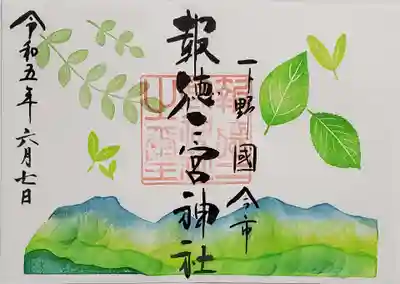 下野國 今市
報徳二宮神社
令和五年六月七日